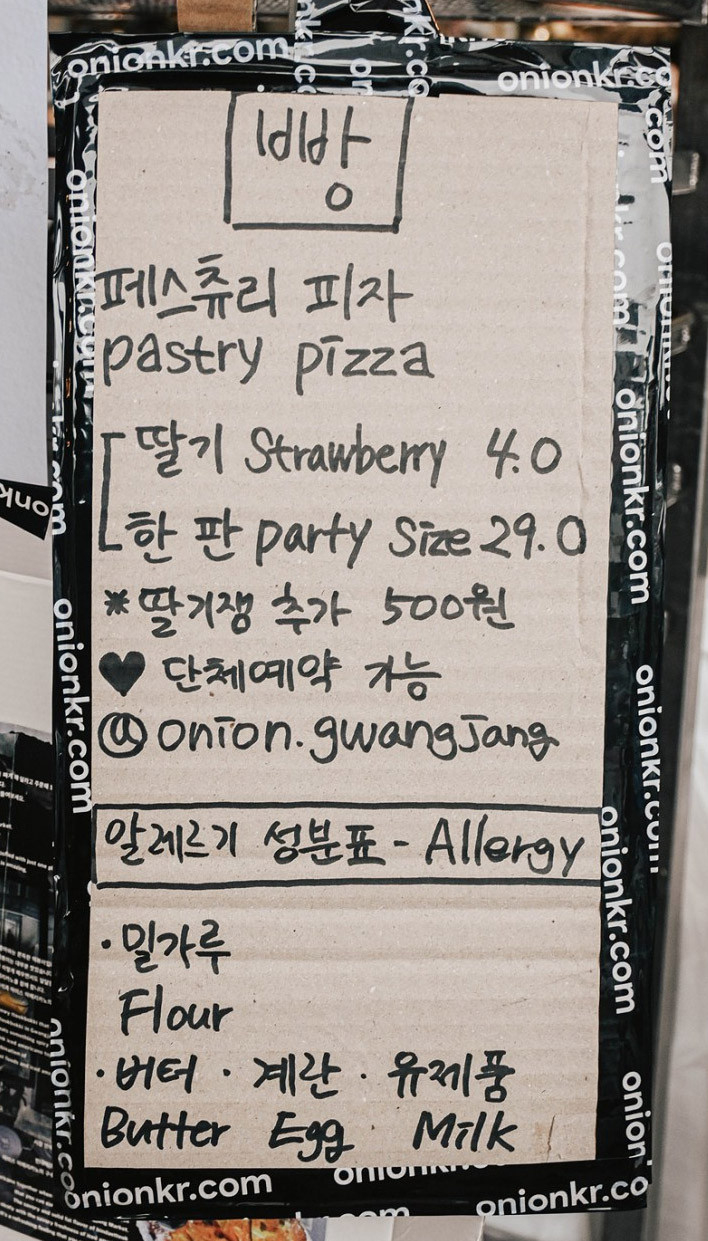 onionkr.com
onionkr.co
빵
페스츄리 피자
pastry pizza
딸기 Strawberry 4.0
한 판 party Size 29.0
*딸기쨈 추가 500원
♥ 단체예약 가능
@onion.gwangjang
알레르기 성분표 - Allergy
· 밀가루
Flour
· 버터 · 계란 · 유제품
Butter Egg Milk
onionkr.com
onionkr.com
onionkr.com
onionkr.com
onionkr.com
onionkr.com
onionkr.co